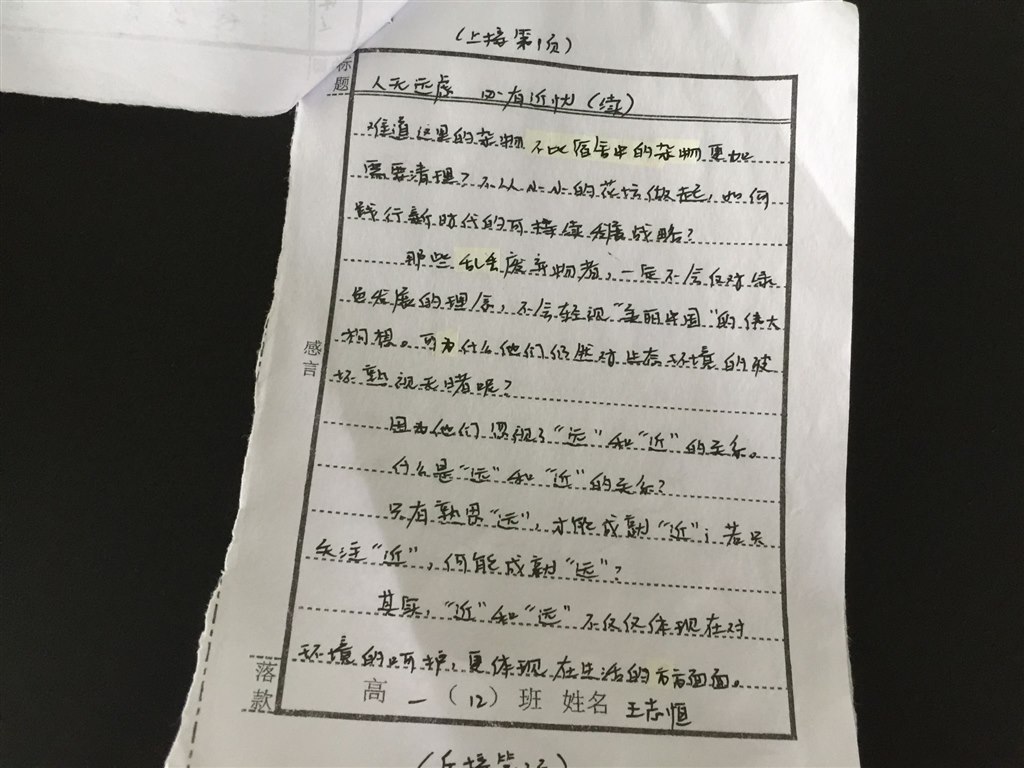 （上接第1页）
标题
人无远虑 必有近忧（续）
难道这里的杂物不比宿舍中的杂物更加
需要清理？不从小小的花坛做起，如何
践行新时代的可持续发展战略？
那些乱丢废弃物者，一定不会反对绿
色发展的理念，不会轻视“美丽中国”的伟大
构想。可为什么他们仍然对生存环境的破
坏熟视无睹呢？
感言
因为他们忽视了“远”和“近”的关系。
什么是“远”和“近”的关系？
只有熟思“远”，才能成就“近”；若只
关注“近”，何能成就“远”？
其实，“近”和“远”不仅仅体现在对
环境的呵护，更体现在生活的方方面面。
落款
高一（12）班 姓名 王志恒